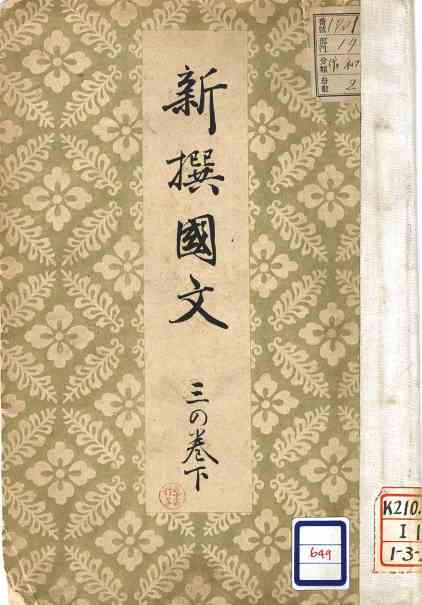 新撰國文
三の巻下
番號
部門 19
分類
冊數 2
649
K210.
I 1
1-3-